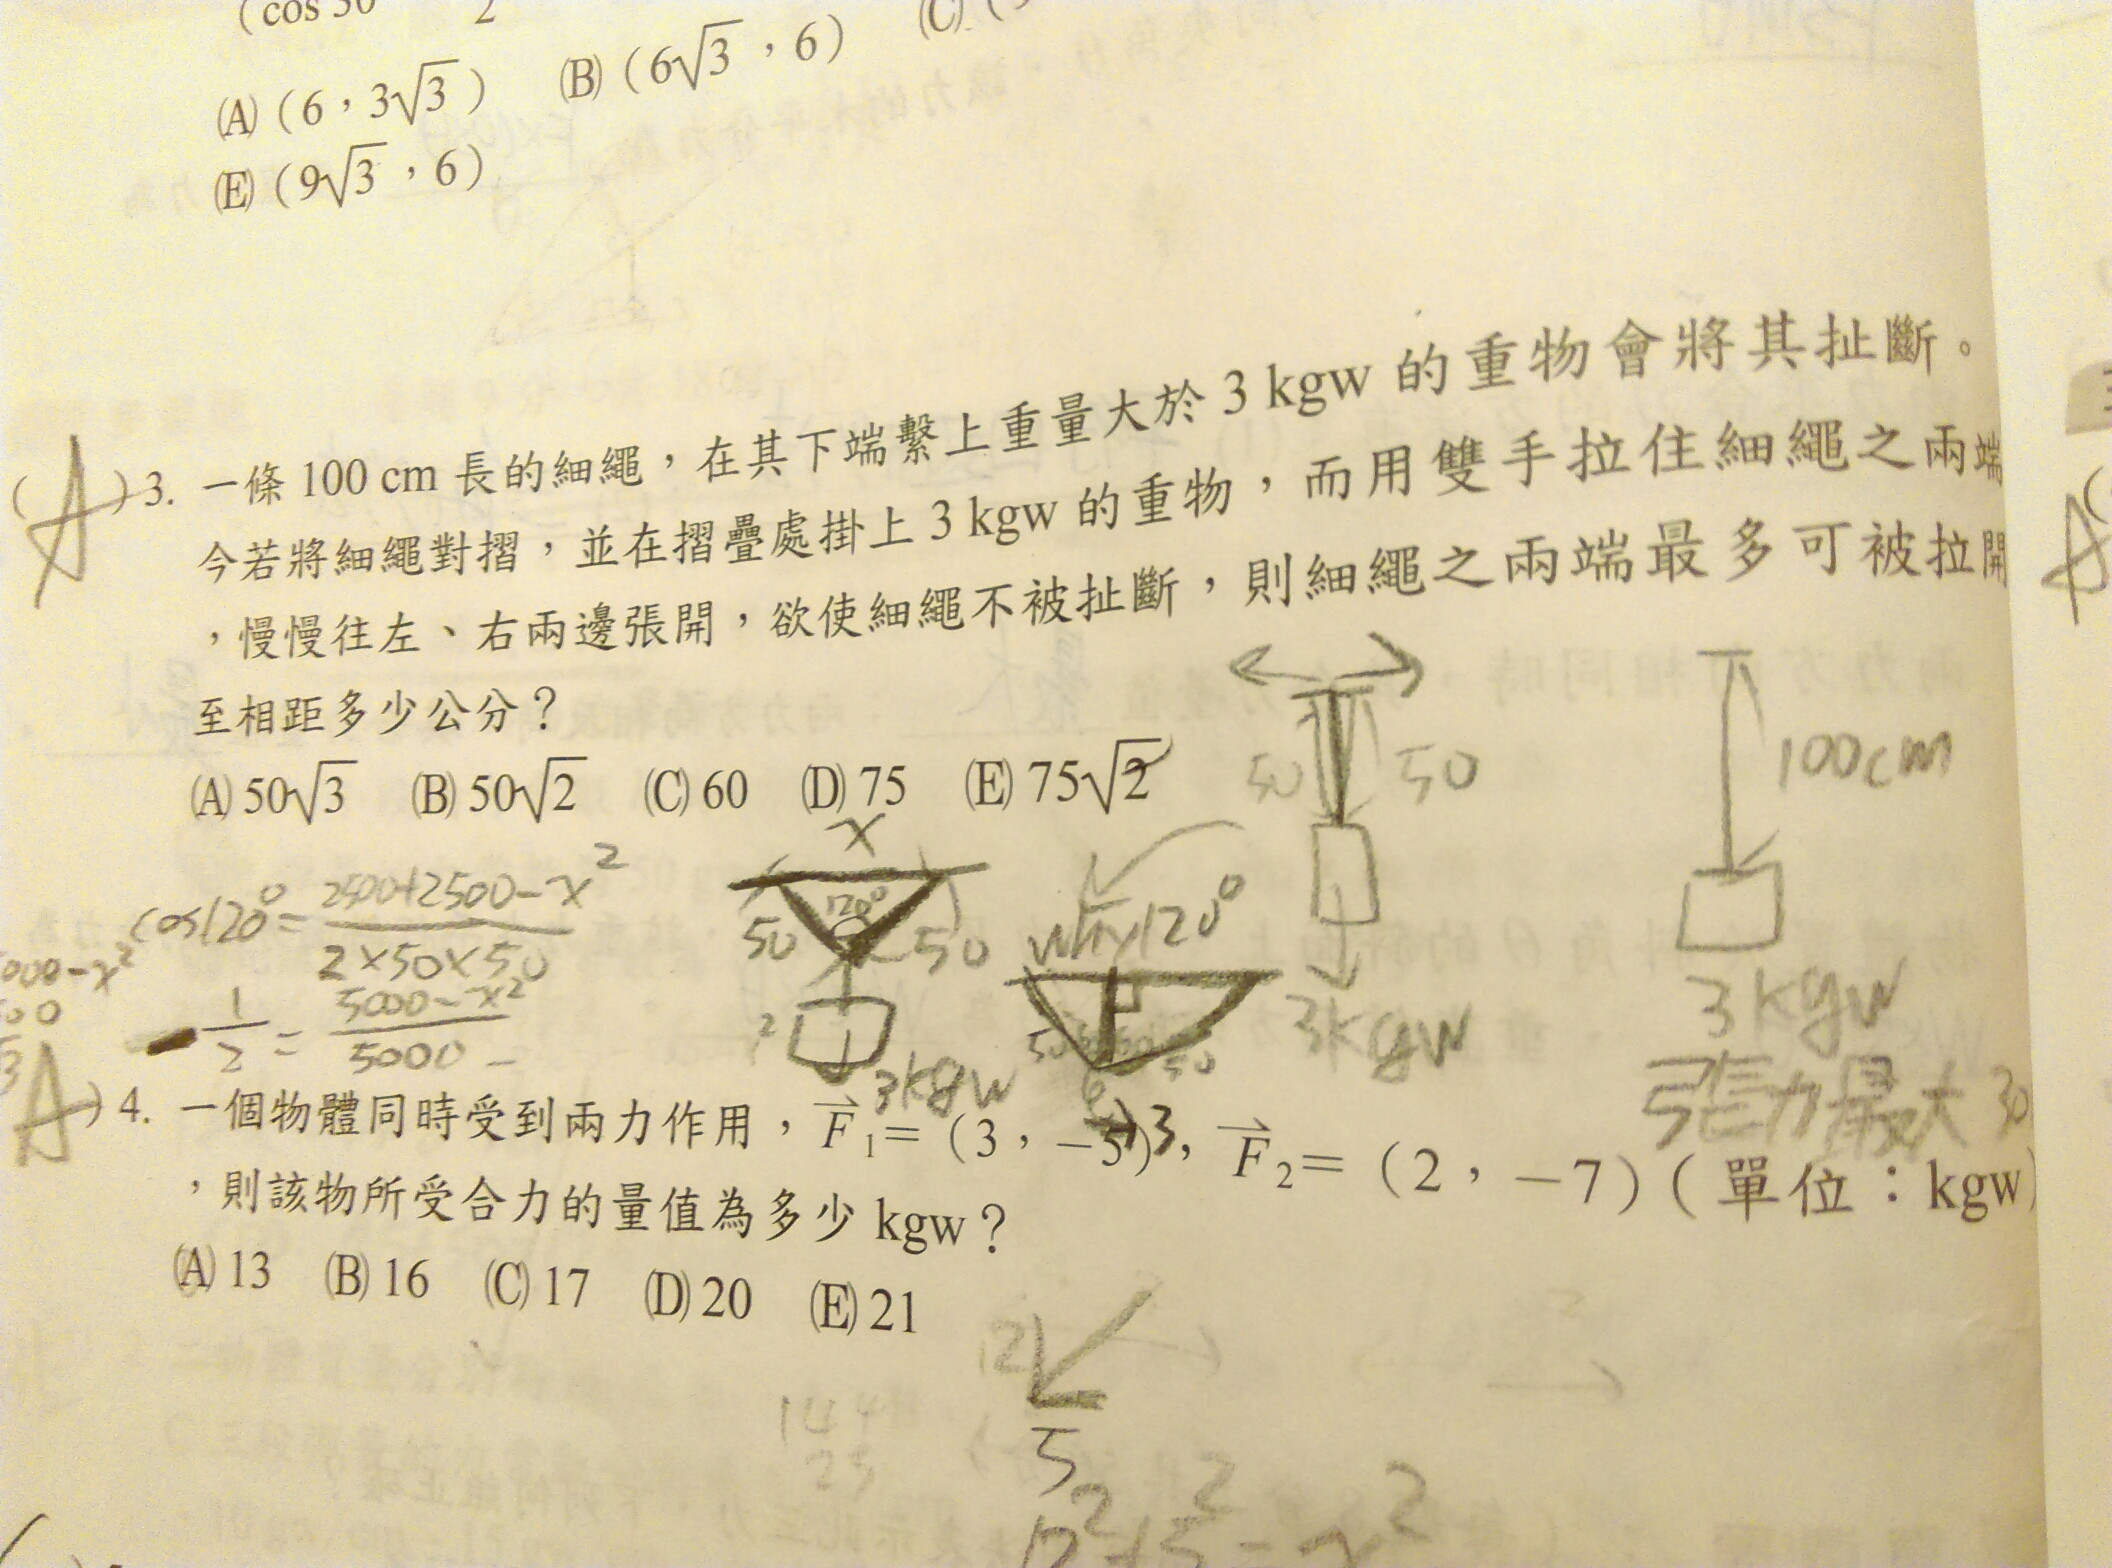 (cos 30 2
(A) (6，3√3) (B) (6√3，6) (C)
(E) (9√3，6)
(A) 3. 一條 100 cm 長的細繩，在其下端繫上重量大於 3 kgw 的重物會將其扯斷。
今若將細繩對摺，並在摺疊處掛上 3 kgw 的重物，而用雙手拉住細繩之兩端
，慢慢往左、右兩邊張開，欲使細繩不被扯斷，則細繩之兩端最多可被拉開
至相距多少公分？
(A) 50√3 (B) 50√2 (C) 60 (D) 75 (E) 75√2
50 50
100cm
3kgw
3kgw
張力最大 3
x
120°
50 50
3kgw
why120°
50 50
cos120°= 2500+2500-x² / 2×50×50
-1/2 = 5000-x² / 5000
000-x²
(A) 4. 一個物體同時受到兩力作用，F₁=（3，－5），F₂=（2，－7）(單位：kgw)
，則該物所受合力的量值為多少 kgw？
(A) 13 (B) 16 (C) 17 (D) 20 (E) 21
12
5
144
25
12²+5²=x²